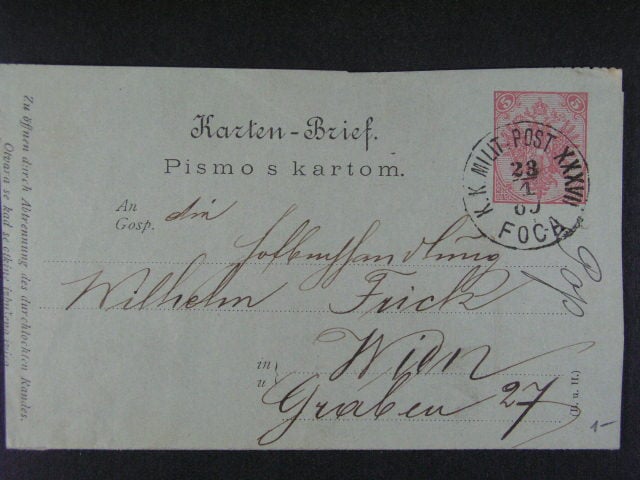 Karten-Brief.
Pismo s kartom.
5 5
K. K. MILIT. POST XXXVII
23
1
FOCA
An
Gosp.
die
Hofbuchhandlung
Wilhelm Frick
in
u
Wien
Graben 27
Zu öffnen durch Abtrennung des durchlochten Randes.
Otvara se kad se otkine
(D. u. II.)
1-